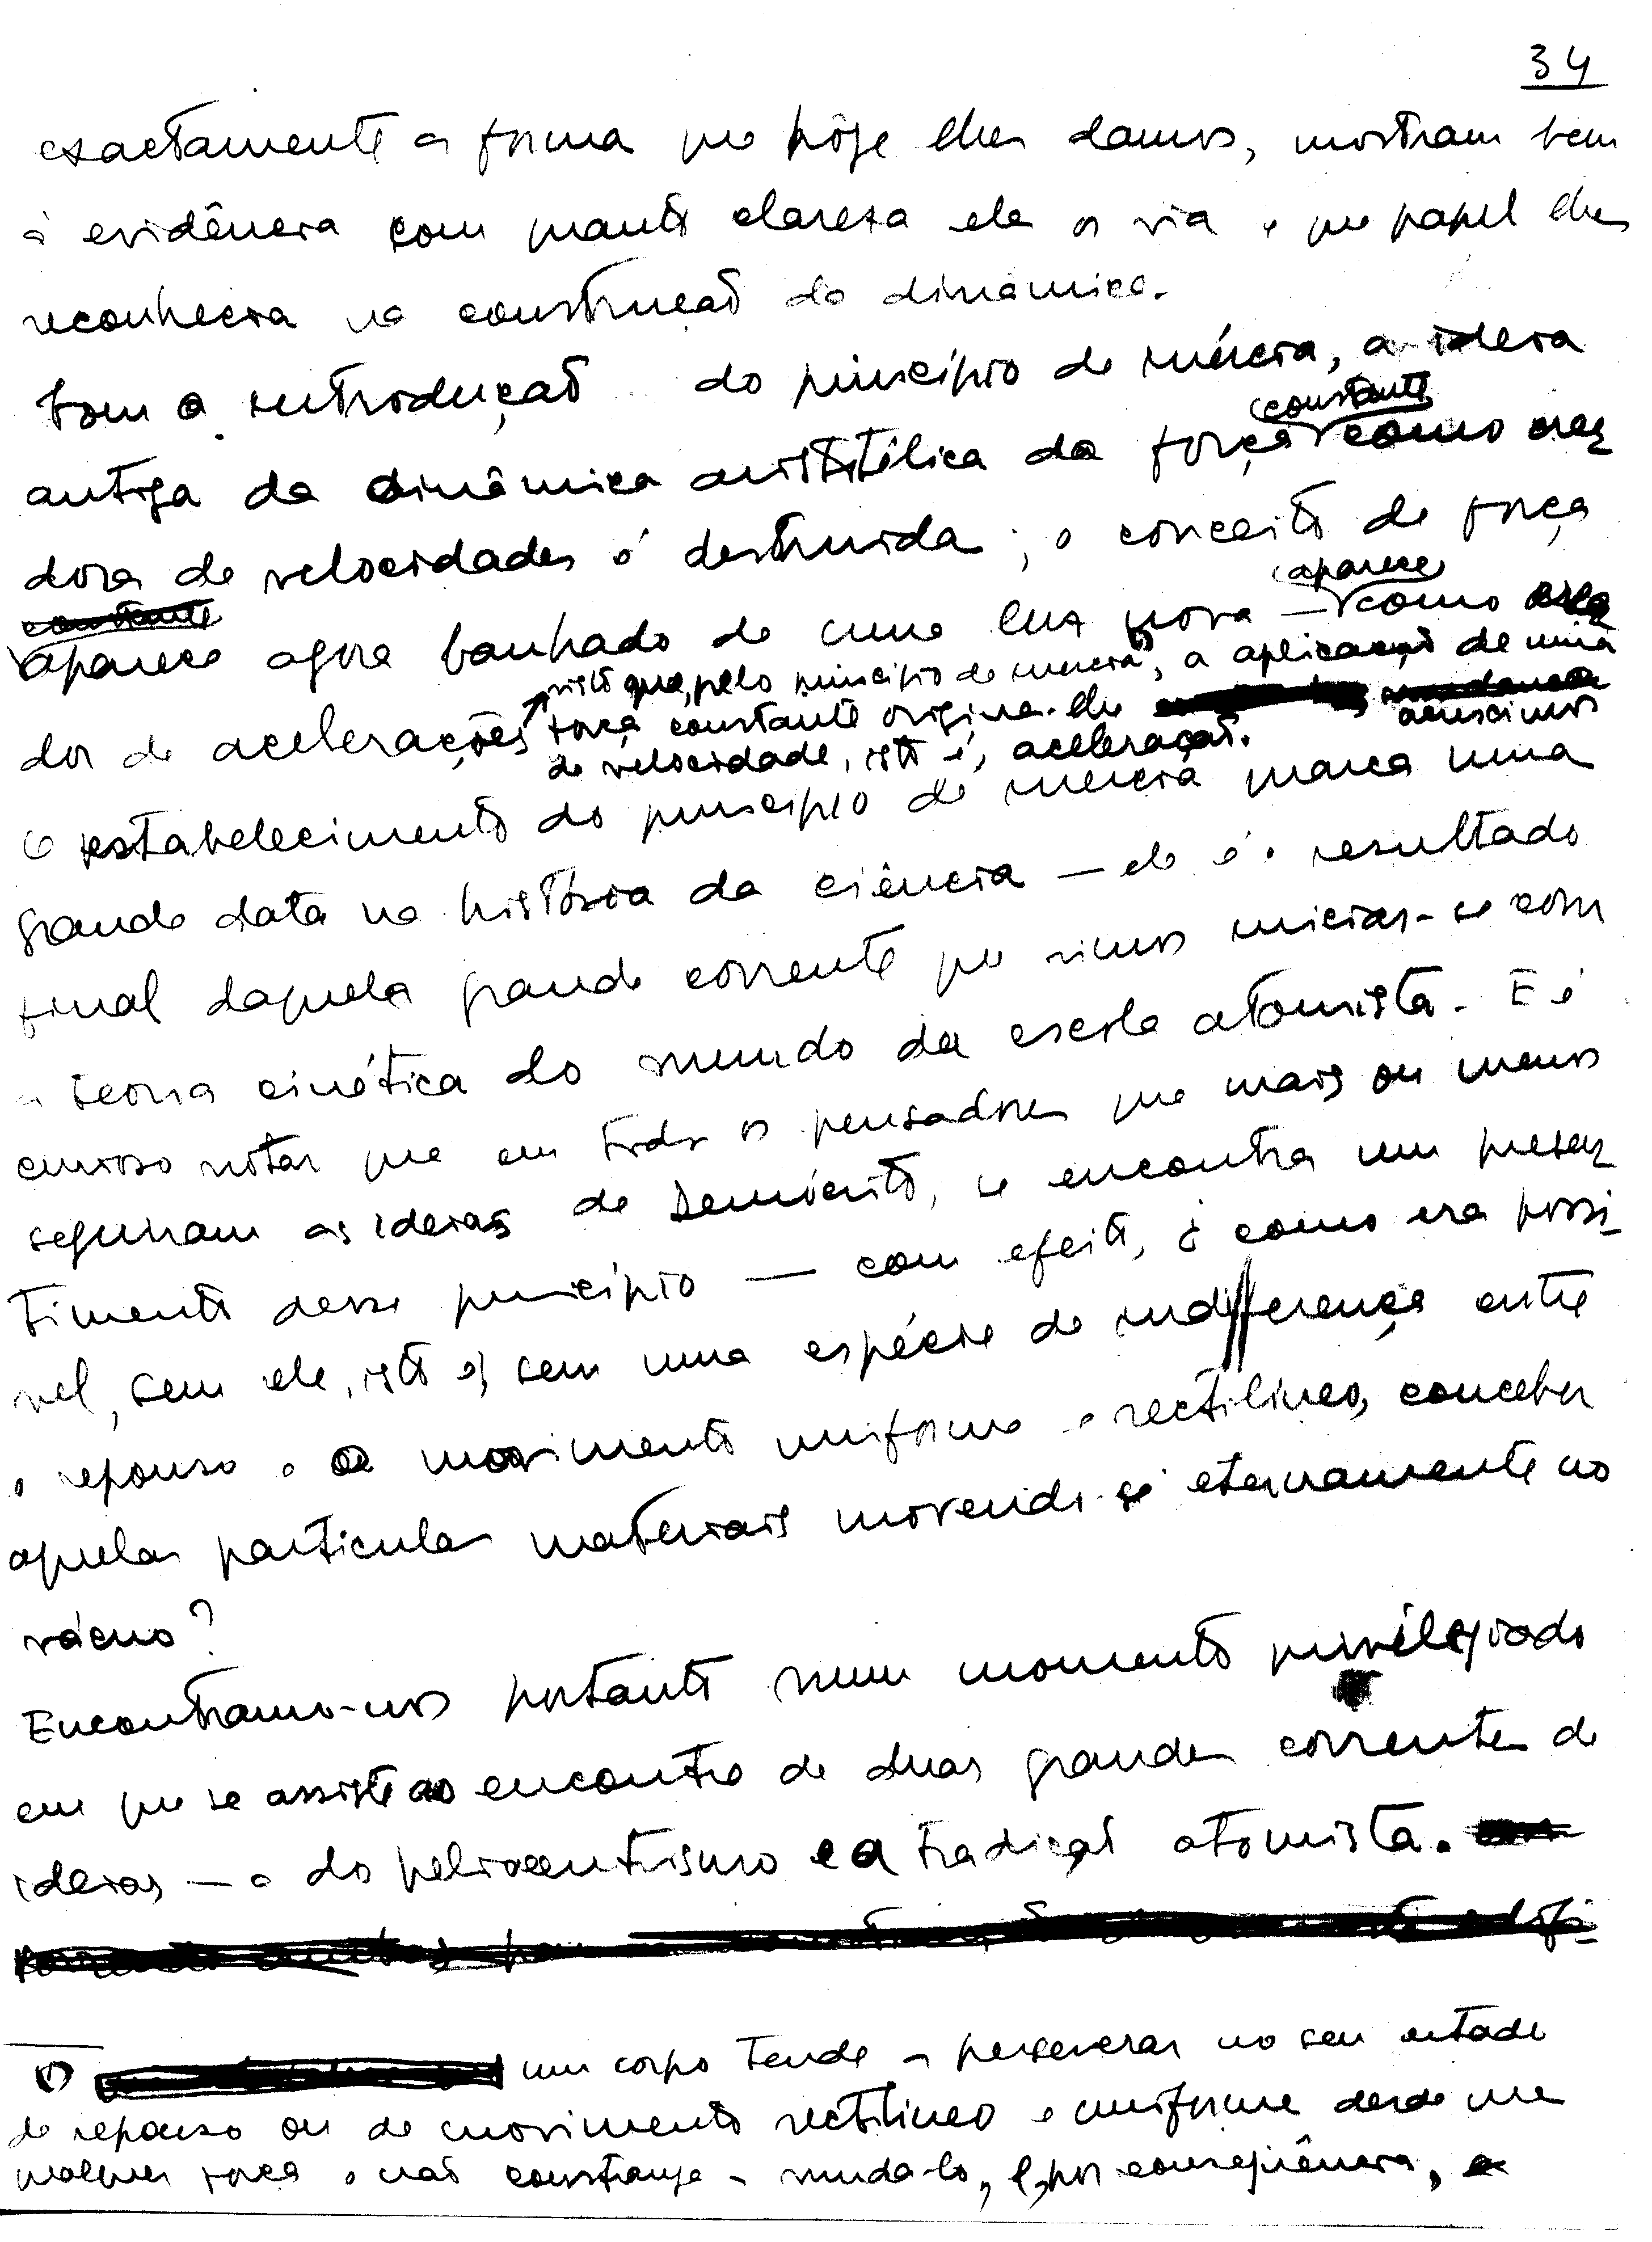 34
exactamente a forma que hoje lhes damos, mostram bem
à evidência com quanta clareza ele os via e que papel lhes
reconhecia na construção da dinâmica.
Com a introdução do princípio de inércia, a ideia
constante
antiga da dinâmica aristotélica da força como crea
dora de velocidades é destruida; o conceito de força
constante
aparece
aparece agora banhado de uma luz nova — como crea
visto que, pelo princípio de inércia, a aplicação de uma
dor de acelerações força constante origina-lhe mudança acréscimos
de velocidade, isto é, aceleração.
O estabelecimento do princípio de inércia marca uma
grande data na história da ciência — ele é o resultado
final daquela grande corrente que vimos iniciar-se com
a teoria cinética do mundo da escola atomista. E é
curioso notar que em todos os pensadores que mais ou menos
seguiram as ideias de Demócrito, se encontra um presen
timento desse princípio — com efeito, como era possi-
vel, sem ele, isto é, sem uma espécie de indiferença entre
o repouso e o movimento uniforme e rectilíneo, conceber
aquelas particulas materiais movendo-se eternamente no
vácuo?
Encontramo-nos portanto num momento privilegiado
em que se assiste ao encontro de duas grandes correntes de
ideias — a do heliocentrismo e a tradição atomista.
um corpo tende a perseverar no seu estado
de repouso ou de movimento rectilíneo e uniforme desde que
qualquer força o não constranja a mudá-lo, e, por consequência, a